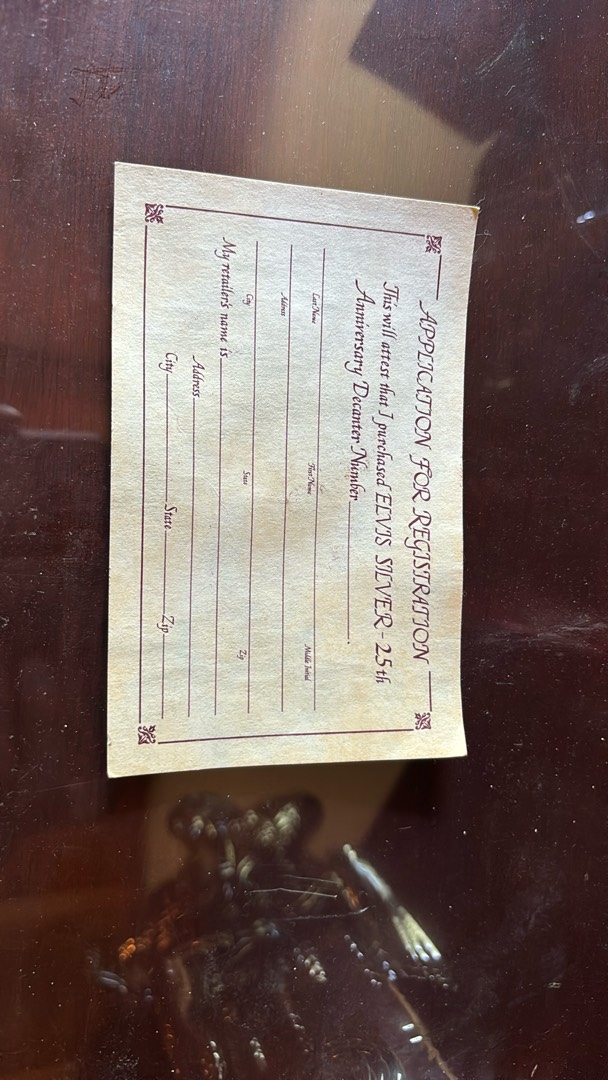 APPLICATION FOR REGISTRATION
This will attest that I purchased ELVIS SILVER - 25th
Anniversary Decanter Number.
Last Name First Name Middle Initial
Address
City State Zip
My retailer's name is
Address
City State Zip